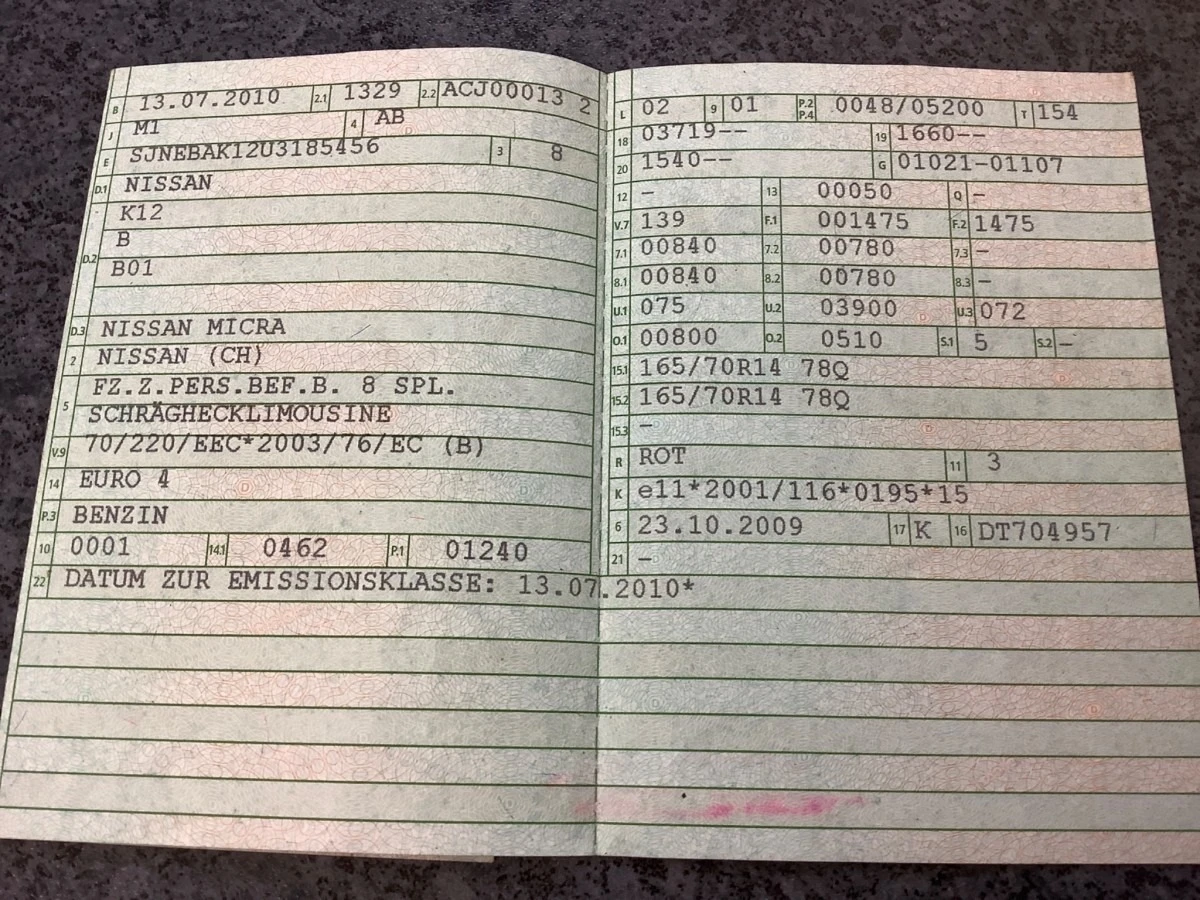 B 13.07.2010 2.1 1329 2.2 ACJ00013 2
J M1 4 AB
E SJNEBAK12U3185456 3 8
D.1 NISSAN
K12
D.2 B
B01
D.3 NISSAN MICRA
2 NISSAN (CH)
5 FZ.Z.PERS.BEF.B. 8 SPL.
SCHRÄGHECKLIMOUSINE
V.9 70/220/EEC*2003/76/EC (B)
14 EURO 4
P.3 BENZIN
10 0001 14.1 0462 P.1 01240
22 DATUM ZUR EMISSIONSKLASSE: 13.07.2010*
L 02 9 01 P.2 P.4 0048/05200 T 154
18 03719-- 19 1660--
20 1540-- G 01021-01107
12 - 13 00050 Q -
V.7 139 F.1 001475 F.2 1475
7.1 00840 7.2 00780 7.3 -
8.1 00840 8.2 00780 8.3 -
U.1 075 U.2 03900 U.3 072
O.1 00800 O.2 0510 S.1 5 S.2 -
15.1 165/70R14 78Q
15.2 165/70R14 78Q
15.3 -
R ROT 11 3
K e11*2001/116*0195*15
6 23.10.2009 17 K 16 DT704957
21 -